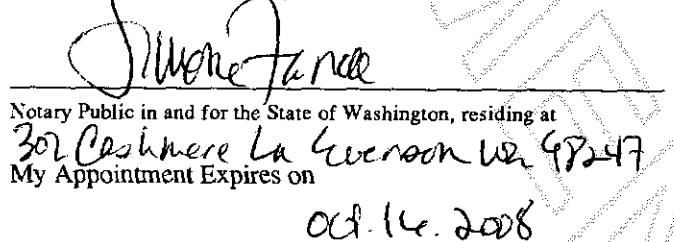 Simone
Notary Public in and for the State of Washington, residing at
302 Cashmere Ln Everson WA 98247
My Appointment Expires on
Oct. 16. 2008